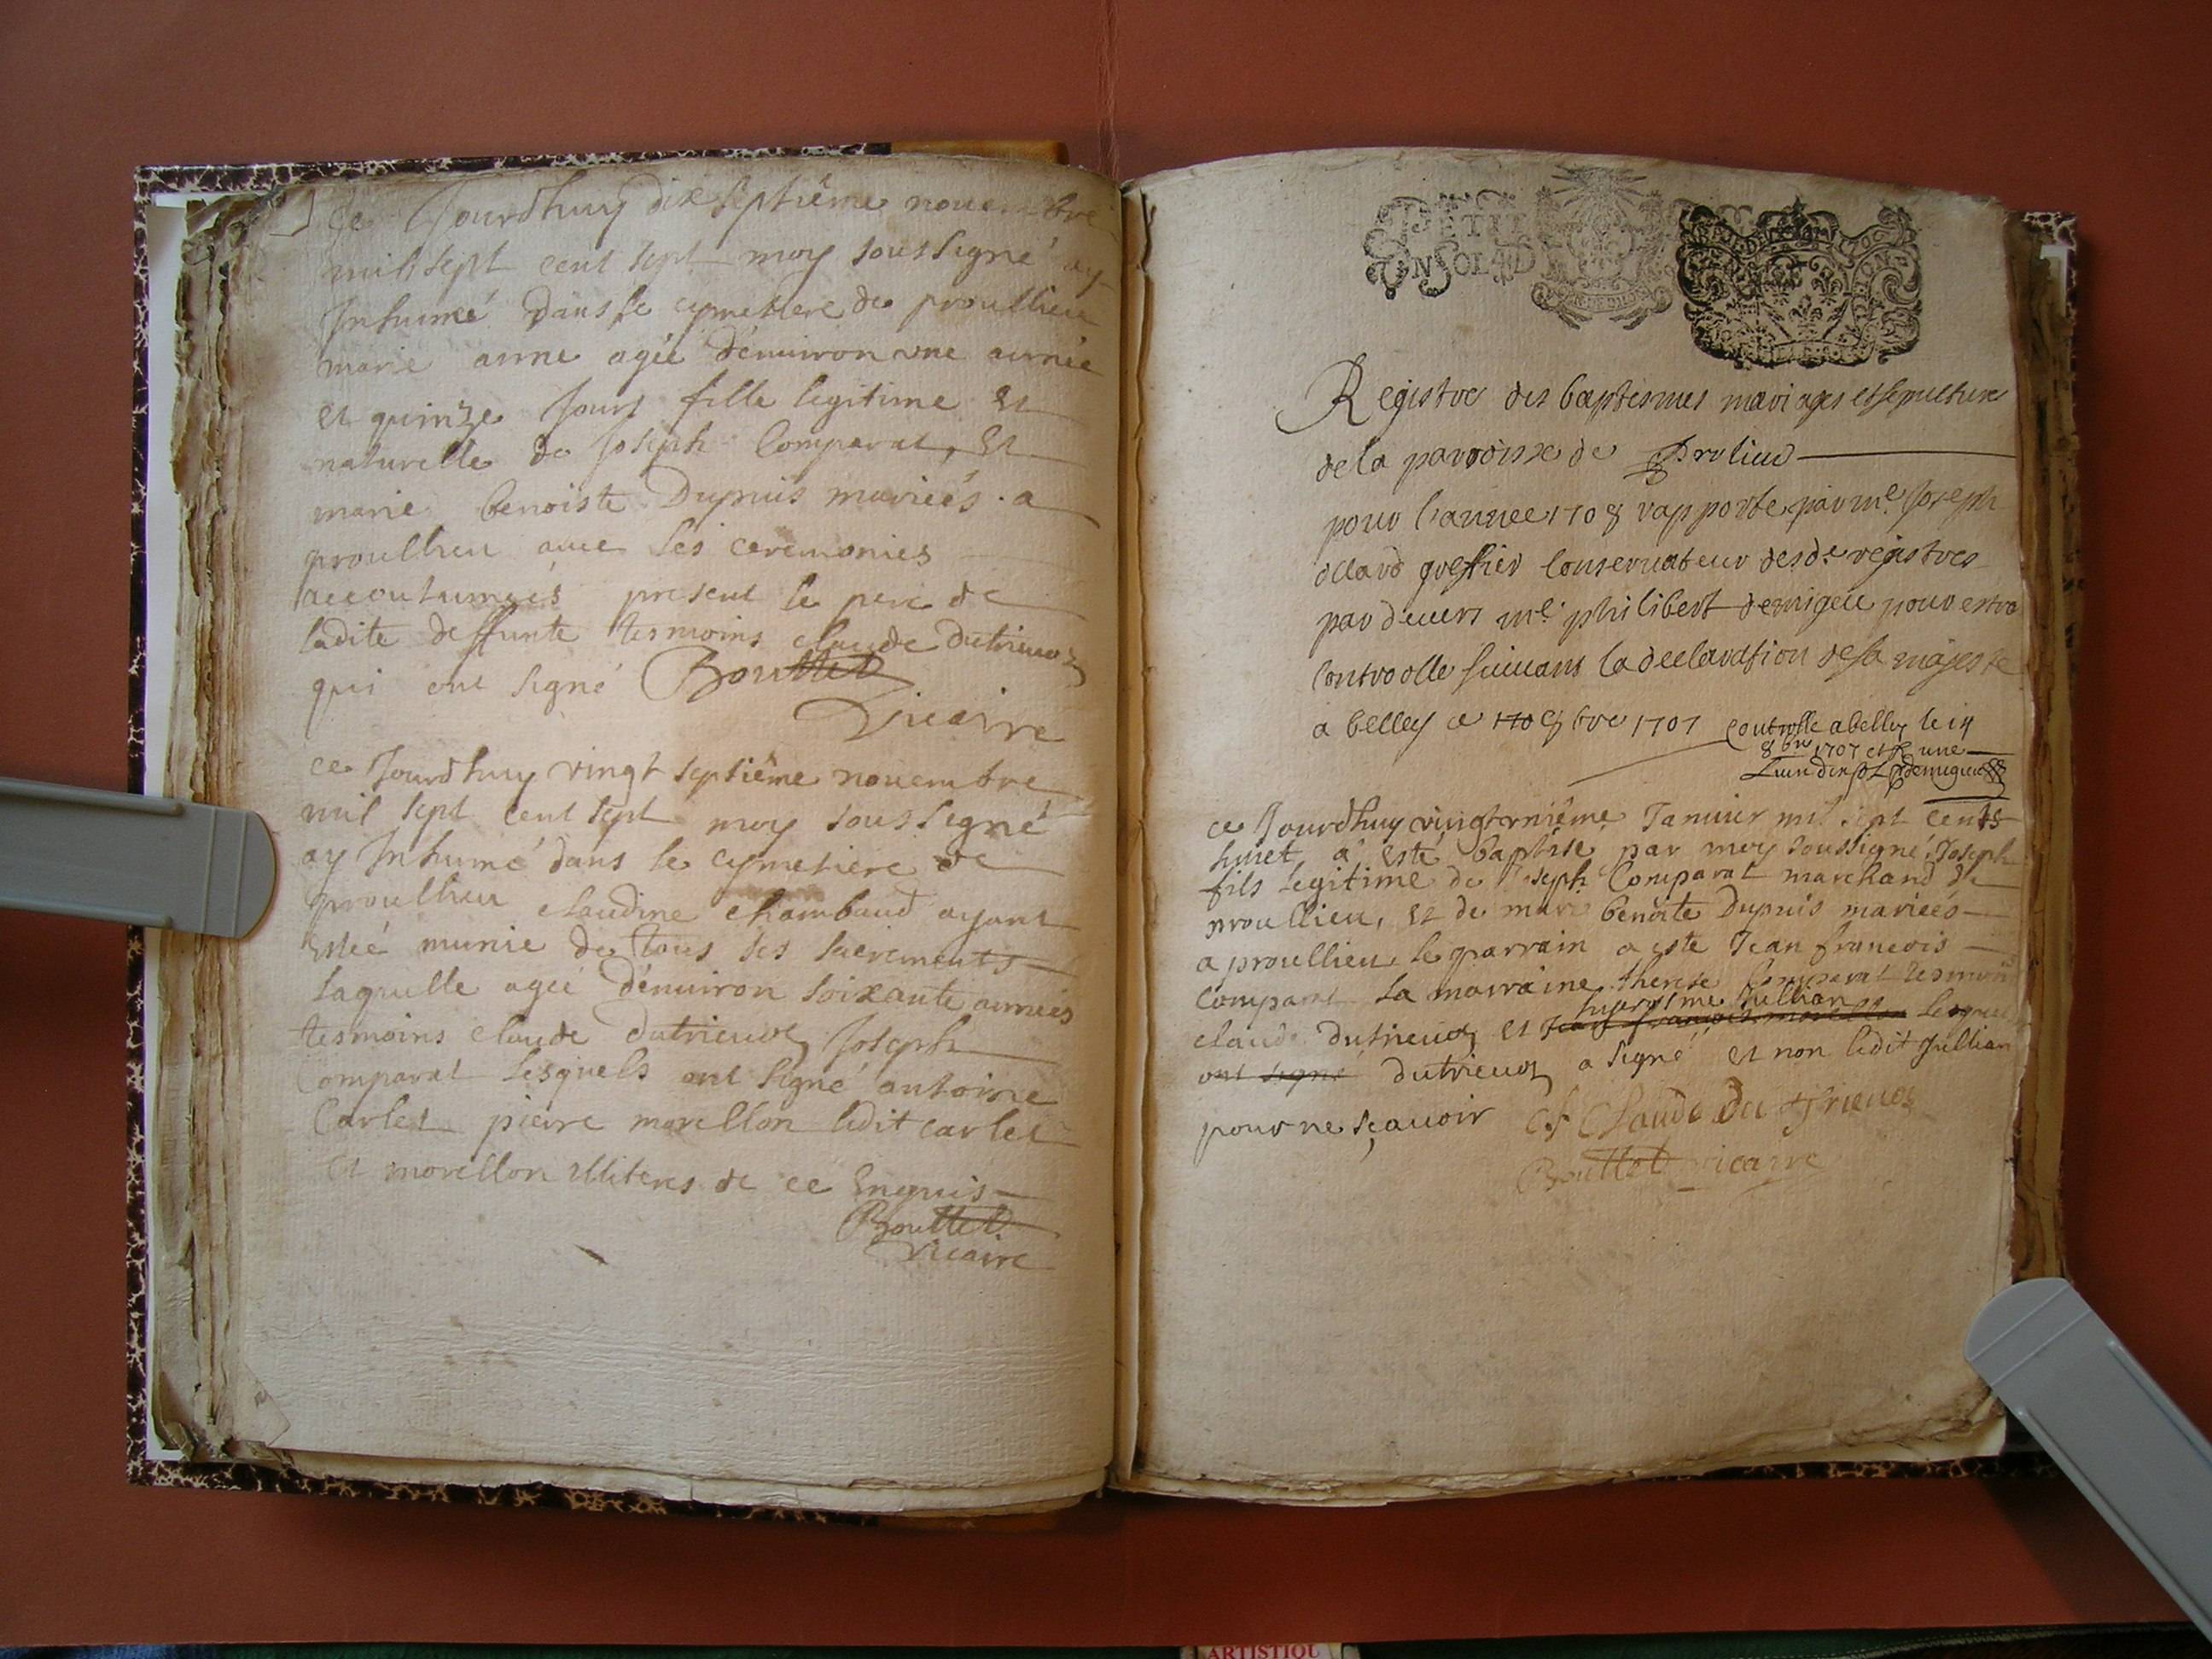 Ce Jourdhuy dix septiême nouembre
mil sept cent sept moy soussigné ay
Inhumé dans le cymetiere de proullieu
marie anne agée dénuiron une année
et quinze Jours fille legitime et
naturelle de Joseph Comparat, Et
marie benoiste Dupuis mariées a
proullieu auec les ceremonies
accoutumées present le pere de
ladite deffunte tesmoins claude dutrieuoz
qui ont signé Bouttet
Vicaire
ce Jourdhuy vingt septiême nouembre
mil sept cent sept moy soussigné
ay Inhumé dans le cymetiere de
proullieu claudine chambaud ayant
Estée munie de tous ses sacrements
laquelle agée dénuiron soixante années
tesmoins claude dutrieuoz Joseph
Comparat lesquels ont signé antoine
Carlet pierre morellon ledit carlet
Et morellon illiteres de ce Enquis
Bouttet
vicaire
PETIT
UN SOL 4 D
Registre des baptesmes mariages et sepulture
de la parroisse de Prolieu
pour l'annee 1708 rapporte par me Joseph
ollard greffier Conseruateur desde registres
par deuers me philibert demigieu pour estre
Controolle suiuant la declaration de sa majeste
a belley ce 8bre 1707 Controlle a belley le 14
8bre 1707 et R une
ce Jourdhuy vingt Januier mil sept cents
huiet a esté baptisé par moy soussigné Joseph
fils legitime de Joseph Comparat marchand de
proullieu, Et de marie benoite Dupuis mariées
a proullieu le parrain a este Jean francois
Comparat la marraine therese Comparat tesmoins
hierosme Jullian
claude dutrieuoz et Jean francois morellon lesquels
ont signé dutrieuoz a signé et non ledit Jullian
pour ne sçauoir Claude Du trieuoz
Bouttet vicaire
ARTISTIQU